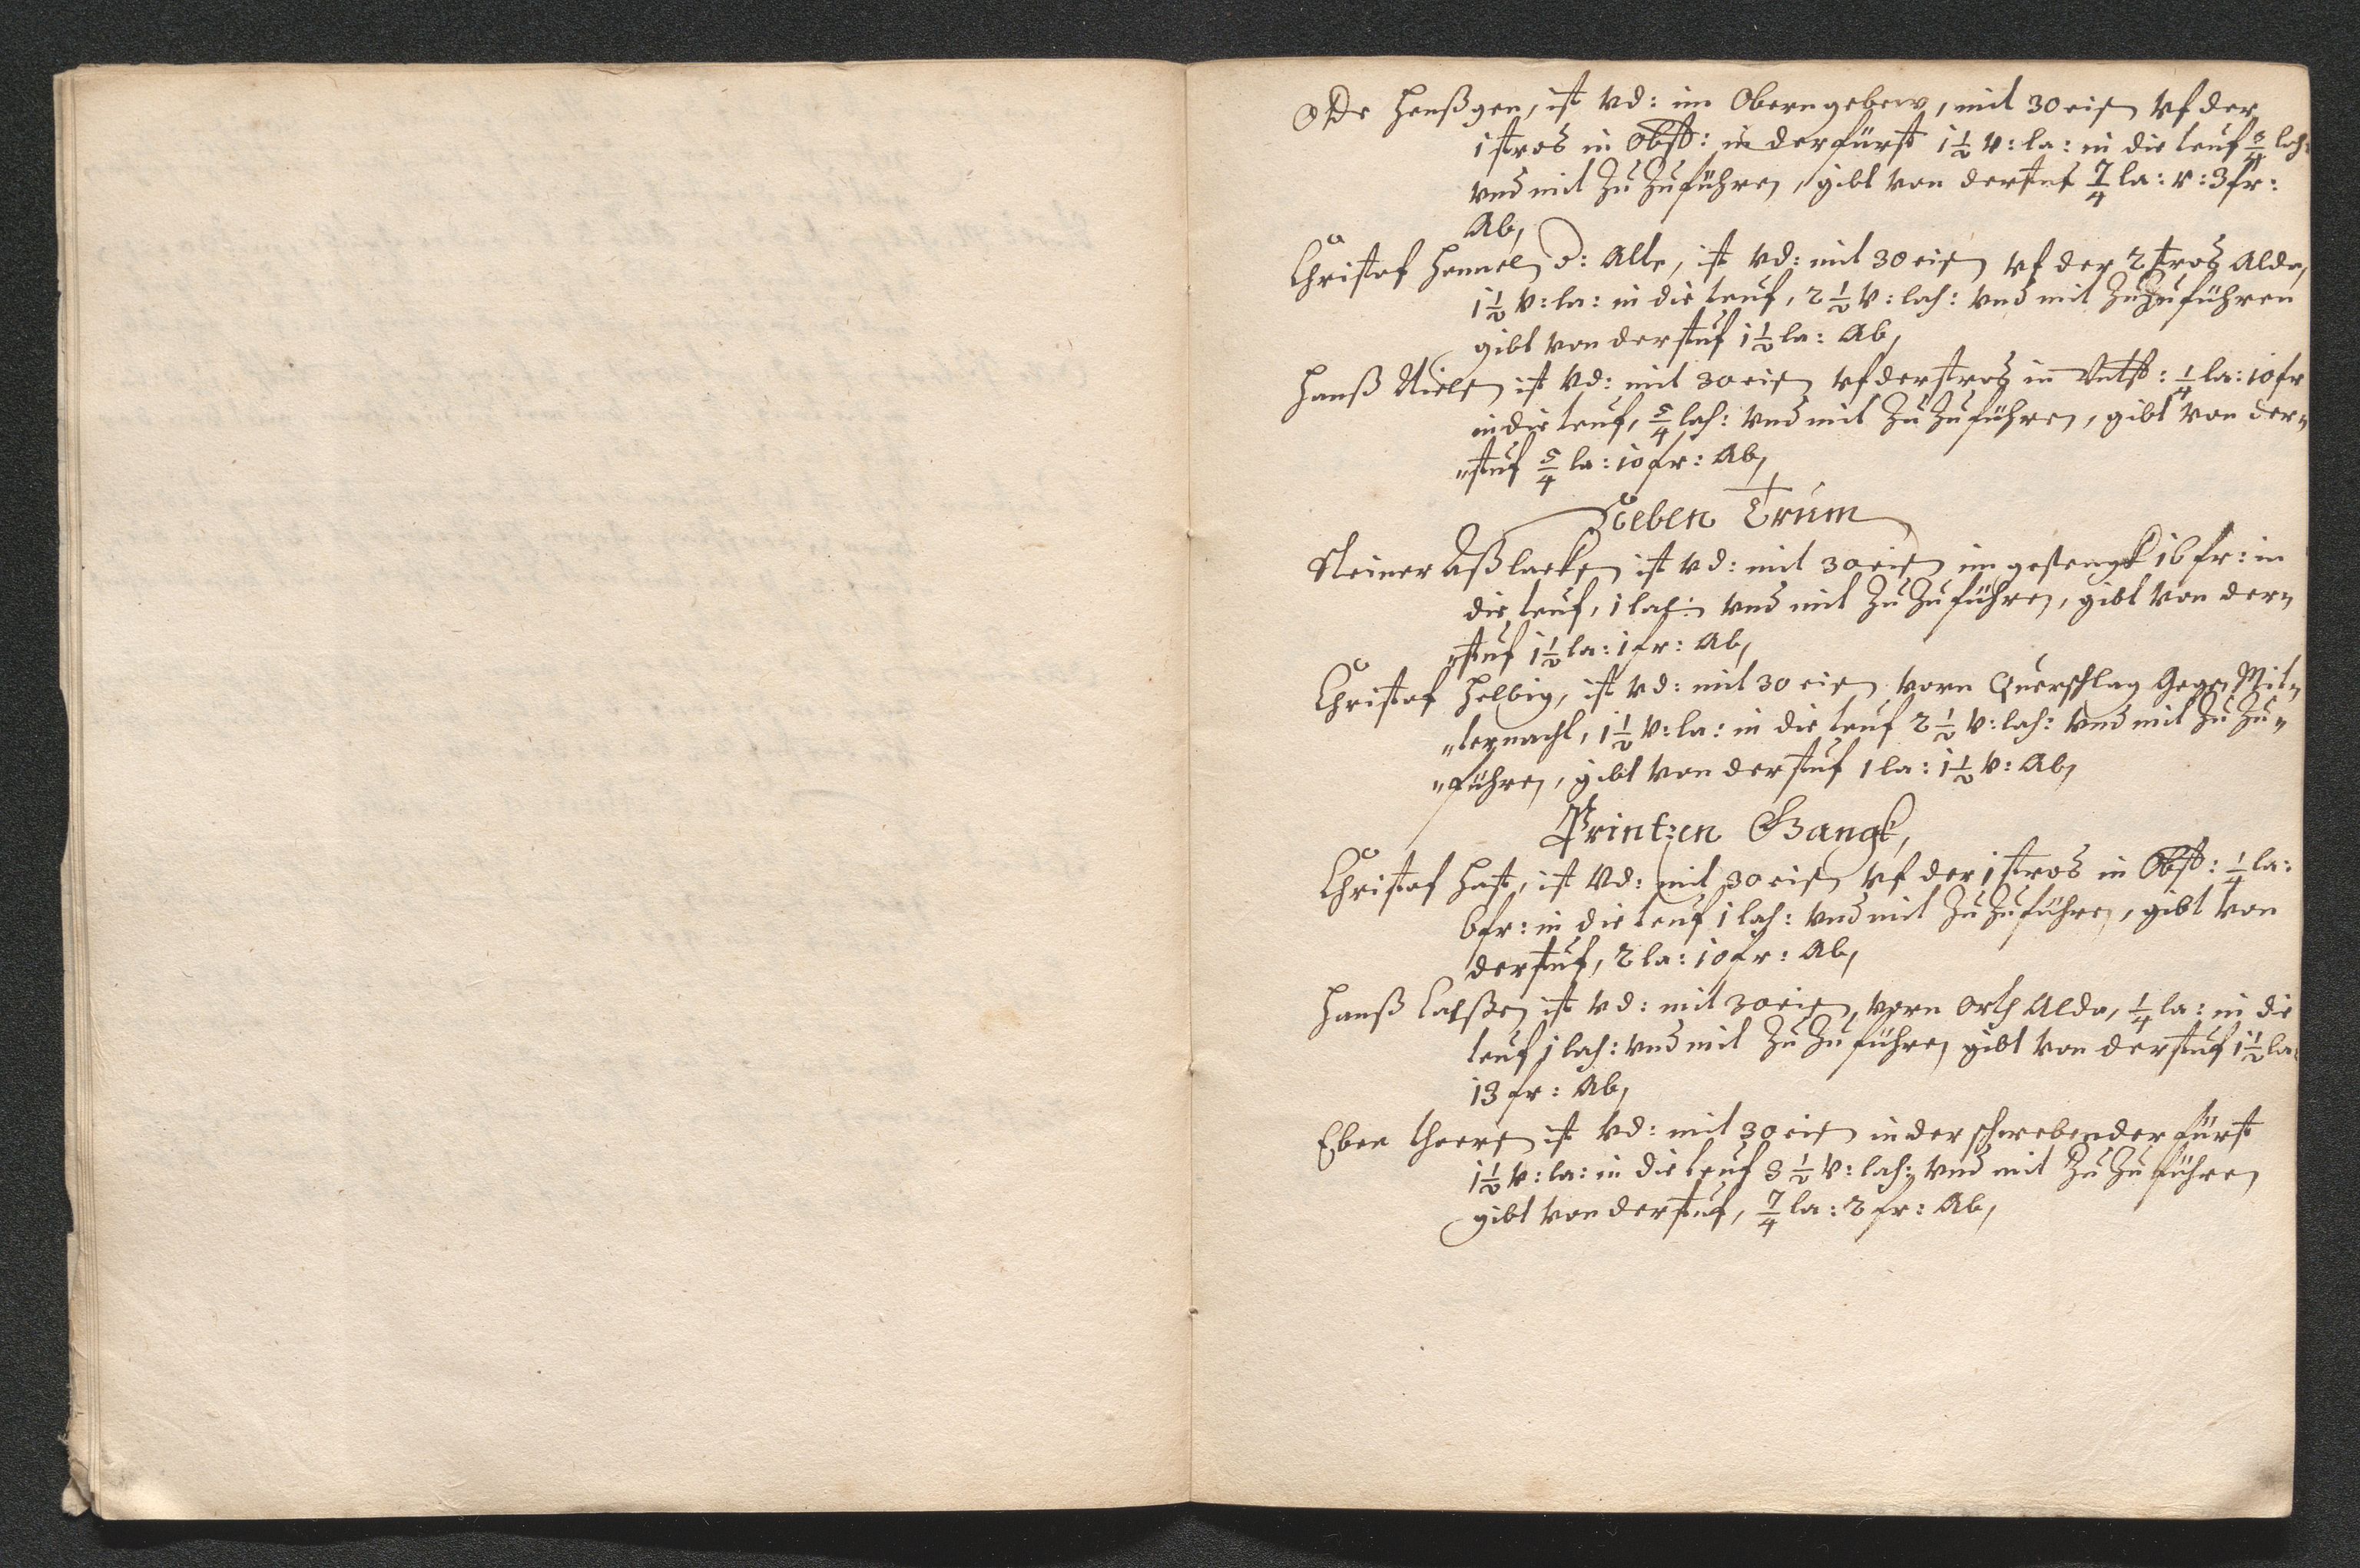 Ode Henßgen, ist vd: im Obern gebew, mit 30 eisen vf der
1 stros in Obst: in der fürst 1½ v: la: in die teuf 3/4 lach:
vnd mit Zu Zuführen, gibt von der stuf 7/4 la: v: 3 fr:
Ab,
Christof Hemmel D: Alte, ist vd: mit 30 eisen vf der 2 stros Alda,
1½ v: la: in die teuf, 2½ v: lach: vnd mit Zu Zuführen
gibt von der stuf 1½ la: Ab,
Hanß Nielsen ist vd: mit 30 eisen vf der stros in Untst: ¼ la: 10 fr
in die teuf, 5/4 lach: vnd mit Zu Zuführen, gibt von der„
„stuf 5/4 la: 10 fr: Ab,
Sieben Trum
Steiner Aßlacksen ist vd: mit 30 eisen im gesengk 16 fr: in
die teuf, 1 lach: vnd mit Zu Zuführen, gibt von der„
„stuf 1½ la: 1 fr: Ab,
Christof Helbig, ist vd: mit 30 eisen vorn Querschlag Gegen Mit„
„ternacht, 1½ v: la: in die teuf 2½ v: lach: vnd mit Zu Zu„
„führen, gibt von der stuf 1 la: 1½ v: Ab,
Printzen Gangk,
Christof Hast, ist vd: mit 30 eisen vf der 1 stros in Obst: ¼ la:
6 fr: in die teuf 1 lach: vnd mit Zu Zuführen, gibt von
der stuf, 2 la: 10 fr: Ab,
Hanß Laßen ist vd: mit 30 eisen, vorn Orth Alda, ¼ la: in die
teuf 1 lach: vnd mit Zu Zuführen gibt von der stuf 1½ la:
13 fr: Ab,
Eben thorsen ist vd: mit 30 eisen in der schwebender fürst
1½ v: la: in die teuf 3½ v: lach: vnd mit Zu Zuführen
gibt von der stuf, 7/4 la: 2 fr: Ab,